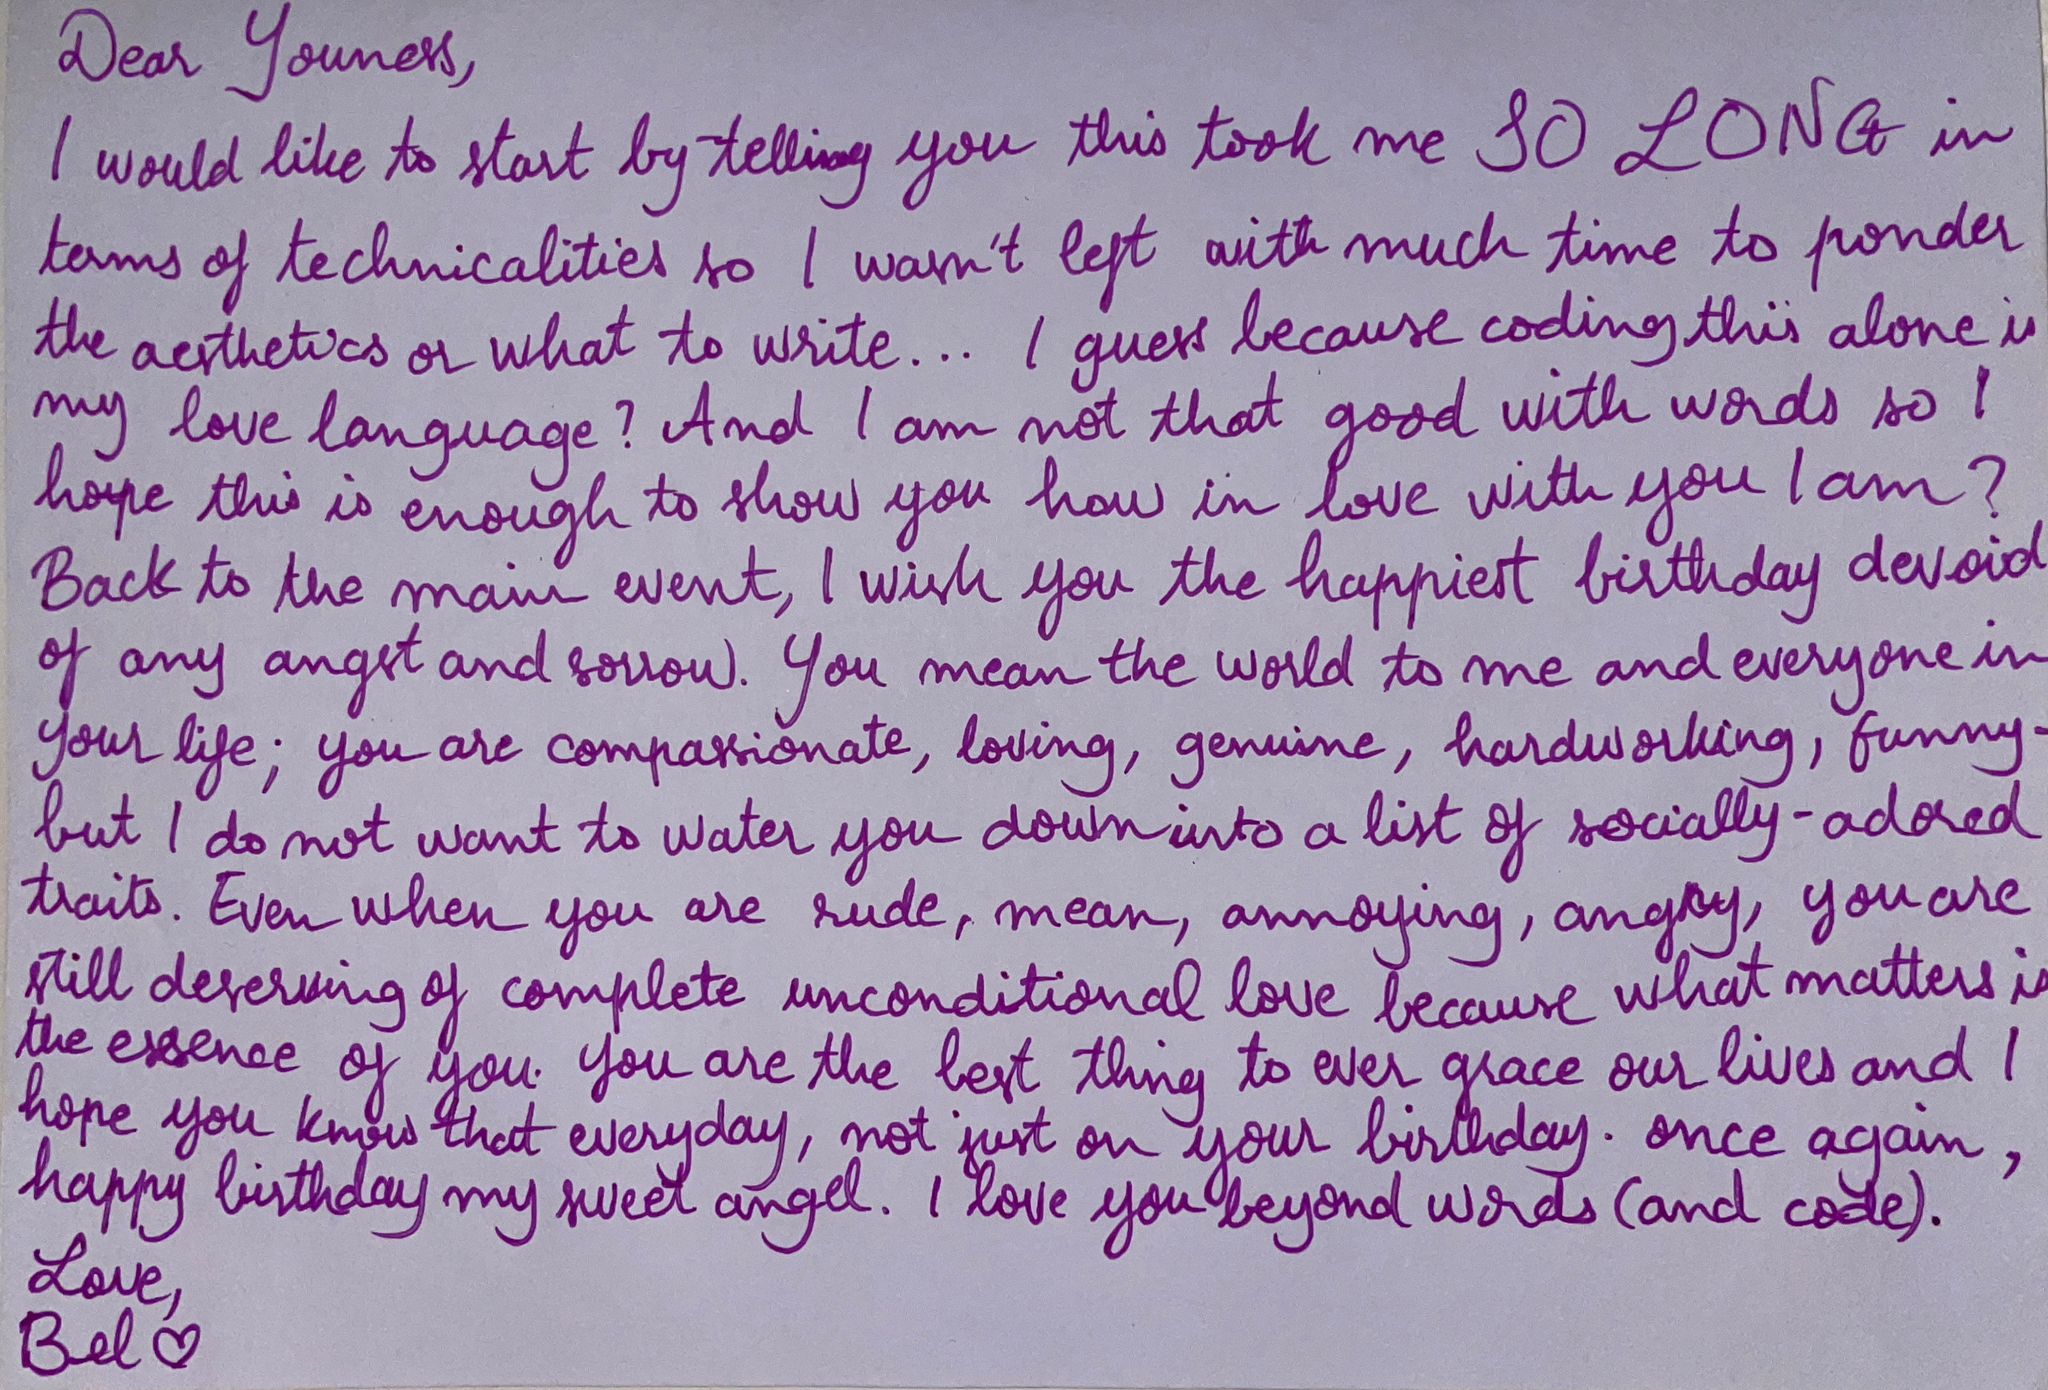 Dear Youness,
I would like to start by telling you this took me SO LONG in
terms of technicalities so I wasn't left with much time to ponder
the aesthetics or what to write... I guess because coding this alone is
my love language? And I am not that good with words so I
hope this is enough to show you how in love with you I am?
Back to the main event, I wish you the happiest birthday devoid
of any angst and sorrow. You mean the world to me and everyone in
your life; you are compassionate, loving, genuine, hardworking, funny-
but I do not want to water you down into a list of socially-adored
traits. Even when you are rude, mean, annoying, angry, you are
still deserving of complete unconditional love because what matters is
the essence of you. You are the best thing to ever grace our lives and I
hope you know that everyday, not just on your birthday. once again,
happy birthday my sweet angel. I love you beyond words (and code).
Love,
Bel ♡